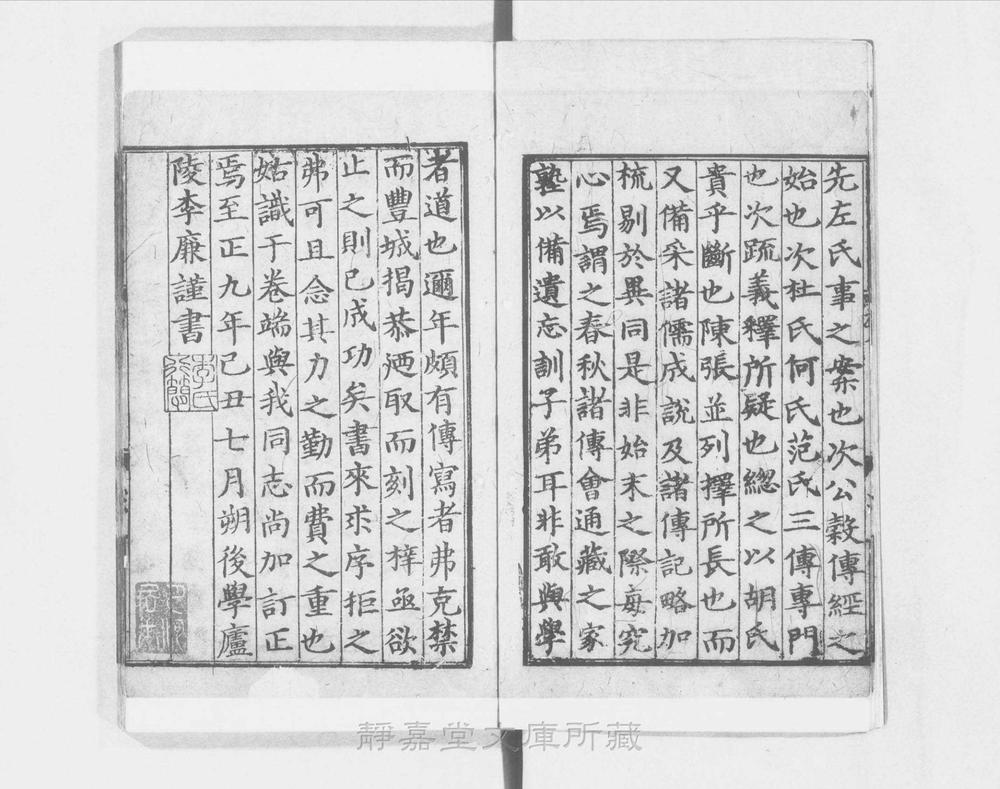 先左氏事之案也次公穀傳經之
始也次杜氏何氏范氏三傳專門
也次疏義釋所疑也緫之以胡氏
貴乎斷也陳張並列擇所長也而
又備采諸儒成說及諸傳記略加
梳剔於異同是非始末之際每究
心焉謂之春秋諸傳會通藏之家
塾以備遺忘訓子弟耳非敢與學
者道也邇年頗有傳寫者弗克禁
而豐城揭恭廼取而刻之梓亟欲
止之則已成功矣書來求序拒之
弗可且念其力之勤而費之重也
姑識于卷端與我同志尚加訂正
焉至正九年己丑七月朔後學廬
陵李廉謹書
李氏
靜嘉堂文庫所藏